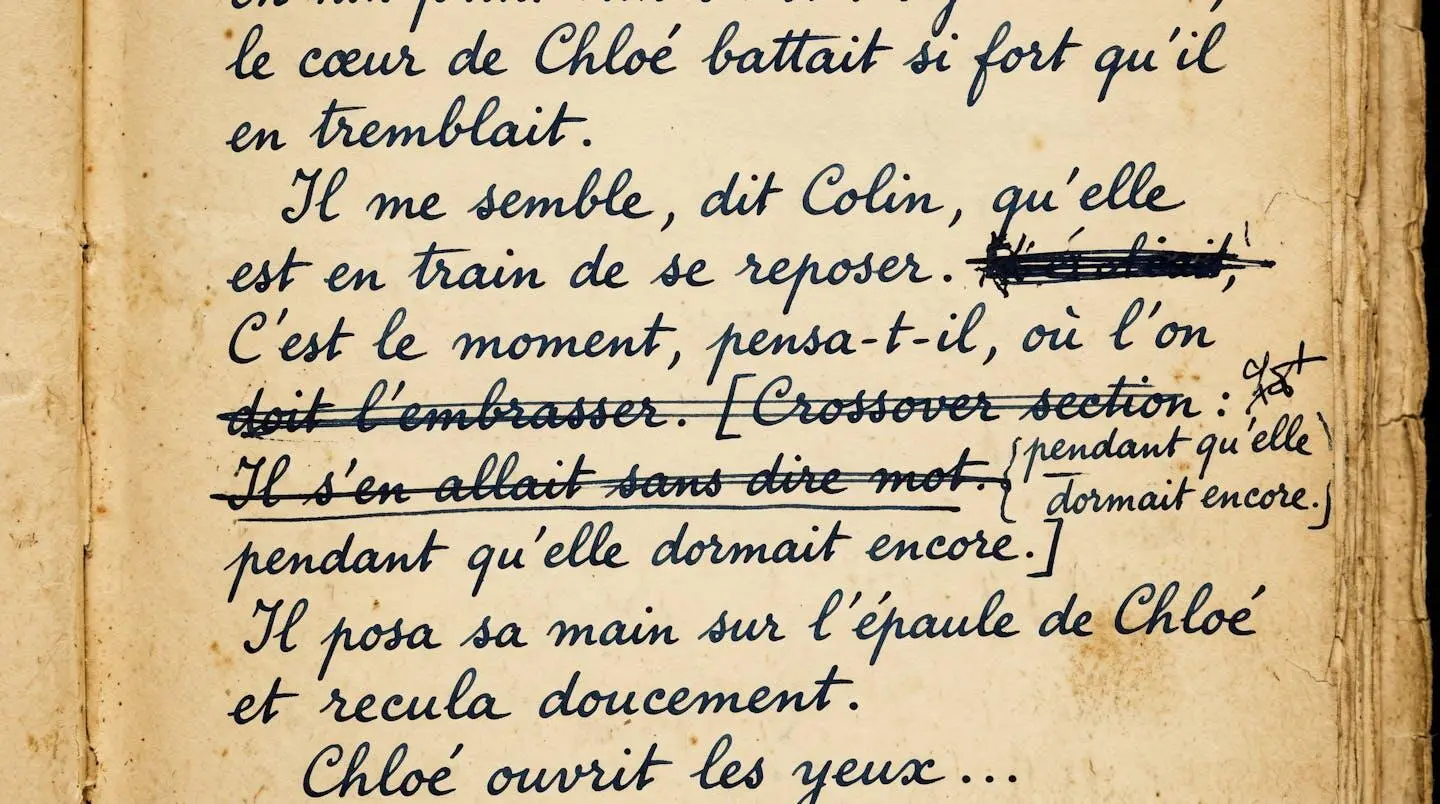 le cœur de Chloé battait si fort qu'il
en tremblait.
Il me semble, dit Colin, qu'elle
est en train de se reposer.
C'est le moment, pensa-t-il, où l'on
doit l'embrasser. [Crossover section :
Il s'en allait sans dire mot. {pendant qu'elle
dormait encore.}
pendant qu'elle dormait encore.]
Il posa sa main sur l'épaule de Chloé
et recula doucement.
Chloé ouvrit les yeux...